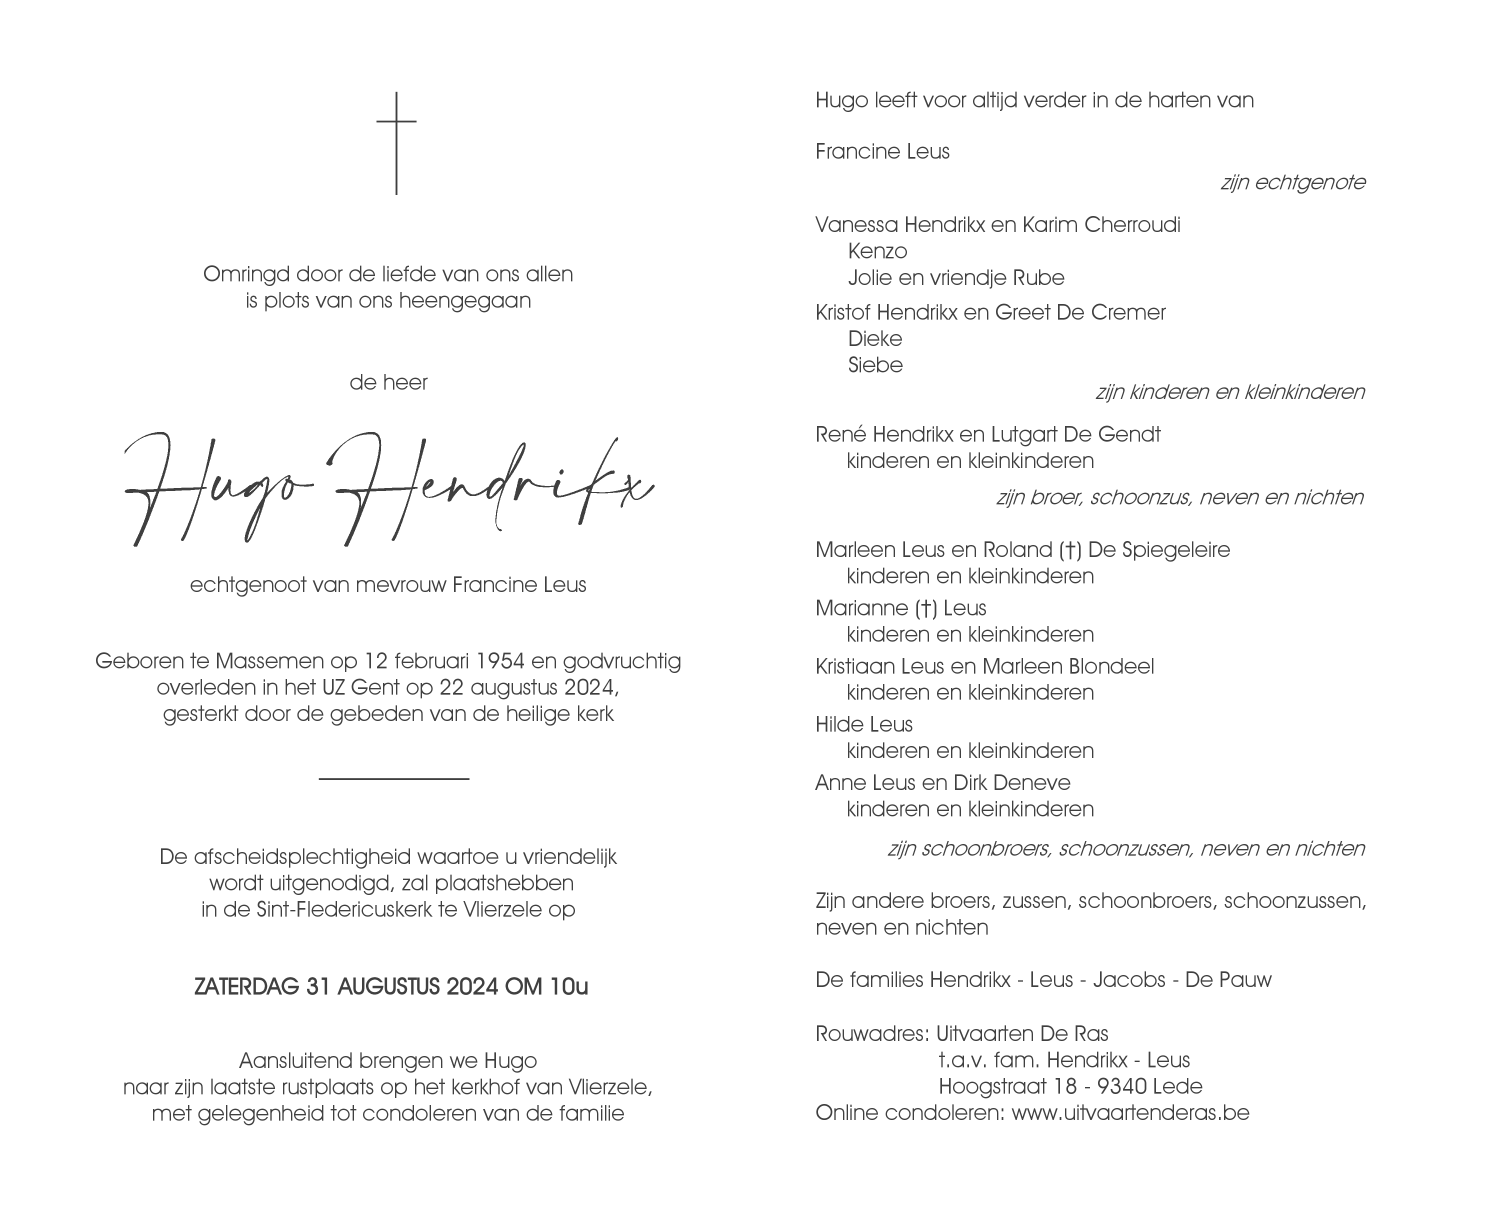 Omringd door de liefde van ons allen
is plots van ons heengegaan
de heer
Hugo Hendrikx
echtgenoot van mevrouw Francine Leus
Geboren te Massemen op 12 februari 1954 en godvruchtig
overleden in het UZ Gent op 22 augustus 2024,
gesterkt door de gebeden van de heilige kerk
De afscheidsplechtigheid waartoe u vriendelijk
wordt uitgenodigd, zal plaatshebben
in de Sint-Fledericuskerk te Vlierzele op
ZATERDAG 31 AUGUSTUS 2024 OM 10u
Aansluitend brengen we Hugo
naar zijn laatste rustplaats op het kerkhof van Vlierzele,
met gelegenheid tot condoleren van de familie
Hugo leeft voor altijd verder in de harten van
Francine Leus
zijn echtgenote
Vanessa Hendrikx en Karim Cherroudi
Kenzo
Jolie en vriendje Rube
Kristof Hendrikx en Greet De Cremer
Dieke
Siebe
zijn kinderen en kleinkinderen
René Hendrikx en Lutgart De Gendt
kinderen en kleinkinderen
zijn broer, schoonzus, neven en nichten
Marleen Leus en Roland (†) De Spiegeleire
kinderen en kleinkinderen
Marianne (†) Leus
kinderen en kleinkinderen
Kristiaan Leus en Marleen Blondeel
kinderen en kleinkinderen
Hilde Leus
kinderen en kleinkinderen
Anne Leus en Dirk Deneve
kinderen en kleinkinderen
zijn schoonbroers, schoonzussen, neven en nichten
Zijn andere broers, zussen, schoonbroers, schoonzussen,
neven en nichten
De families Hendrikx - Leus - Jacobs - De Pauw
Rouwadres: Uitvaarten De Ras
t.a.v. fam. Hendrikx - Leus
Hoogstraat 18 - 9340 Lede
Online condoleren: www.uitvaartenderas.be